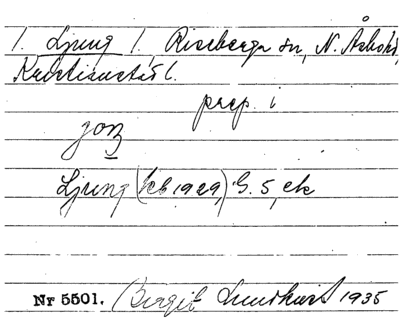 1. Ljung 1. Riseberga sn, N. Åsbo hd,
Kristianstads l.
prep. i
joŋ
Ljung (kb 1929), G. 5, ek
Nr 5501. Birgit Lundkvist 1935